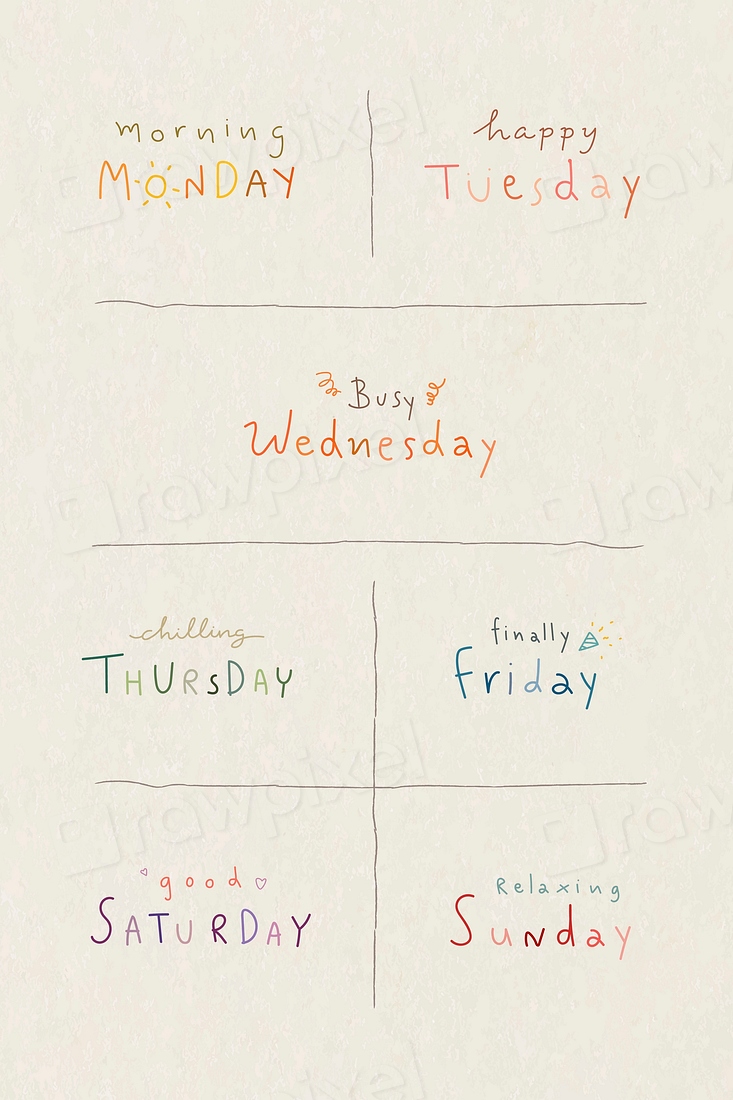 morning
MONDAY
happy
Tuesday
Busy
Wednesday
chilling
THURSDAY
finally
Friday
good
SATURDAY
Relaxing
Sunday
rawpixel
rawpixel
rawpixel